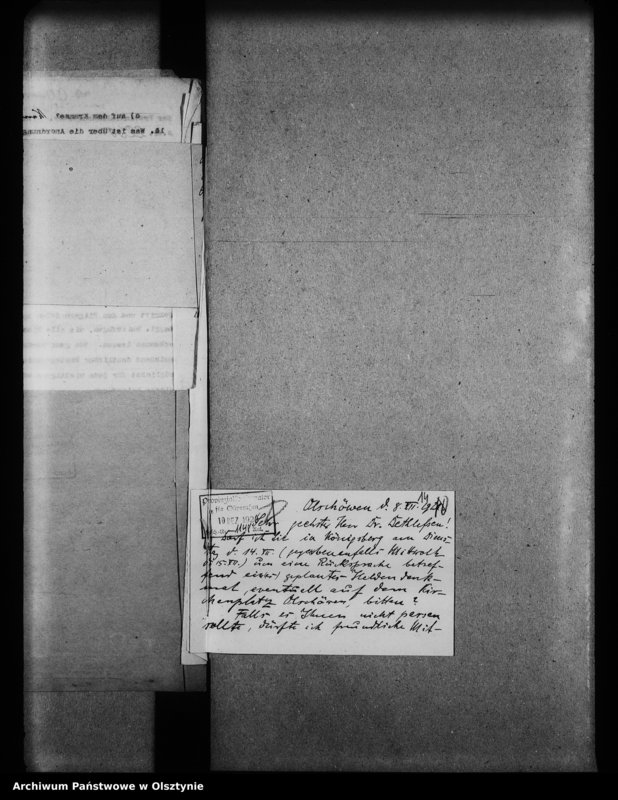 d) auf dem Kreuze?
16. Was ist über die Anordnung
Provinzialkonservator
für Ostpreußen
10 DEZ. 192
Olschöwen d. 8. XII. 192
Sehr geehrter Herr Dr. Dethlefsen!
Darf ich Sie in Königsberg am Diens-
tag d. 14. XII. (gegebenenfalls Mittwoch
d. 15. XII.) um eine Rücksprache betref-
fend eines geplanten Helden denk-
mal, eventuell auf dem Kir-
chenplatz Olschöwen, bitten?
Falls es Ihnen nicht passen
sollte, dürfte ich freundliche Mit-
Archiwum Państwowe w Olsztynie